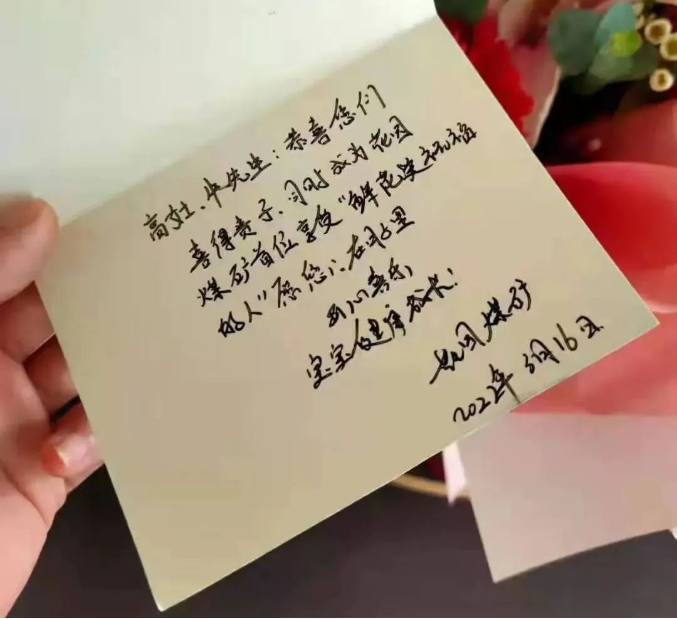 高女士、牛先生：恭喜您们
喜得贵子、同时成为花园
煤矿首位享受“鲜花送祝福
的人”愿您们在月子里
开心喜乐，
宝宝健康成长！
花园煤矿
2022年3月16日